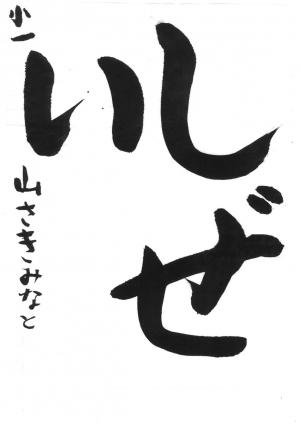 しぜ
い
小一
山さきみなと